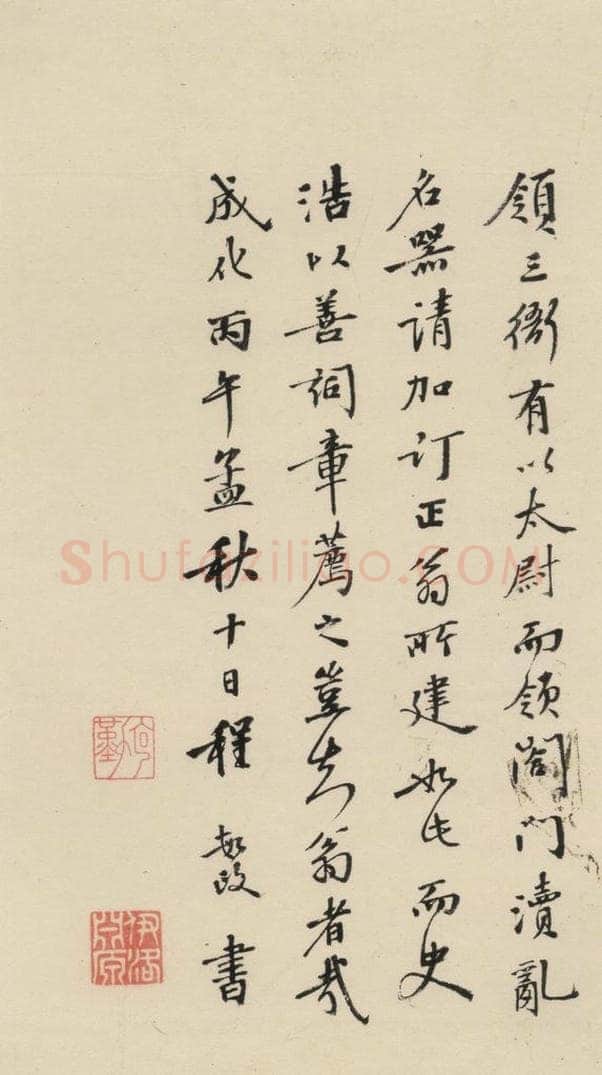 領三衙有以太尉而領閤門瀆亂
名器請加訂正翁所建如此而史
浩以善詞章薦之豈知翁者哉
成化丙午孟秋十日程敏政書
Shufaziliao.COM